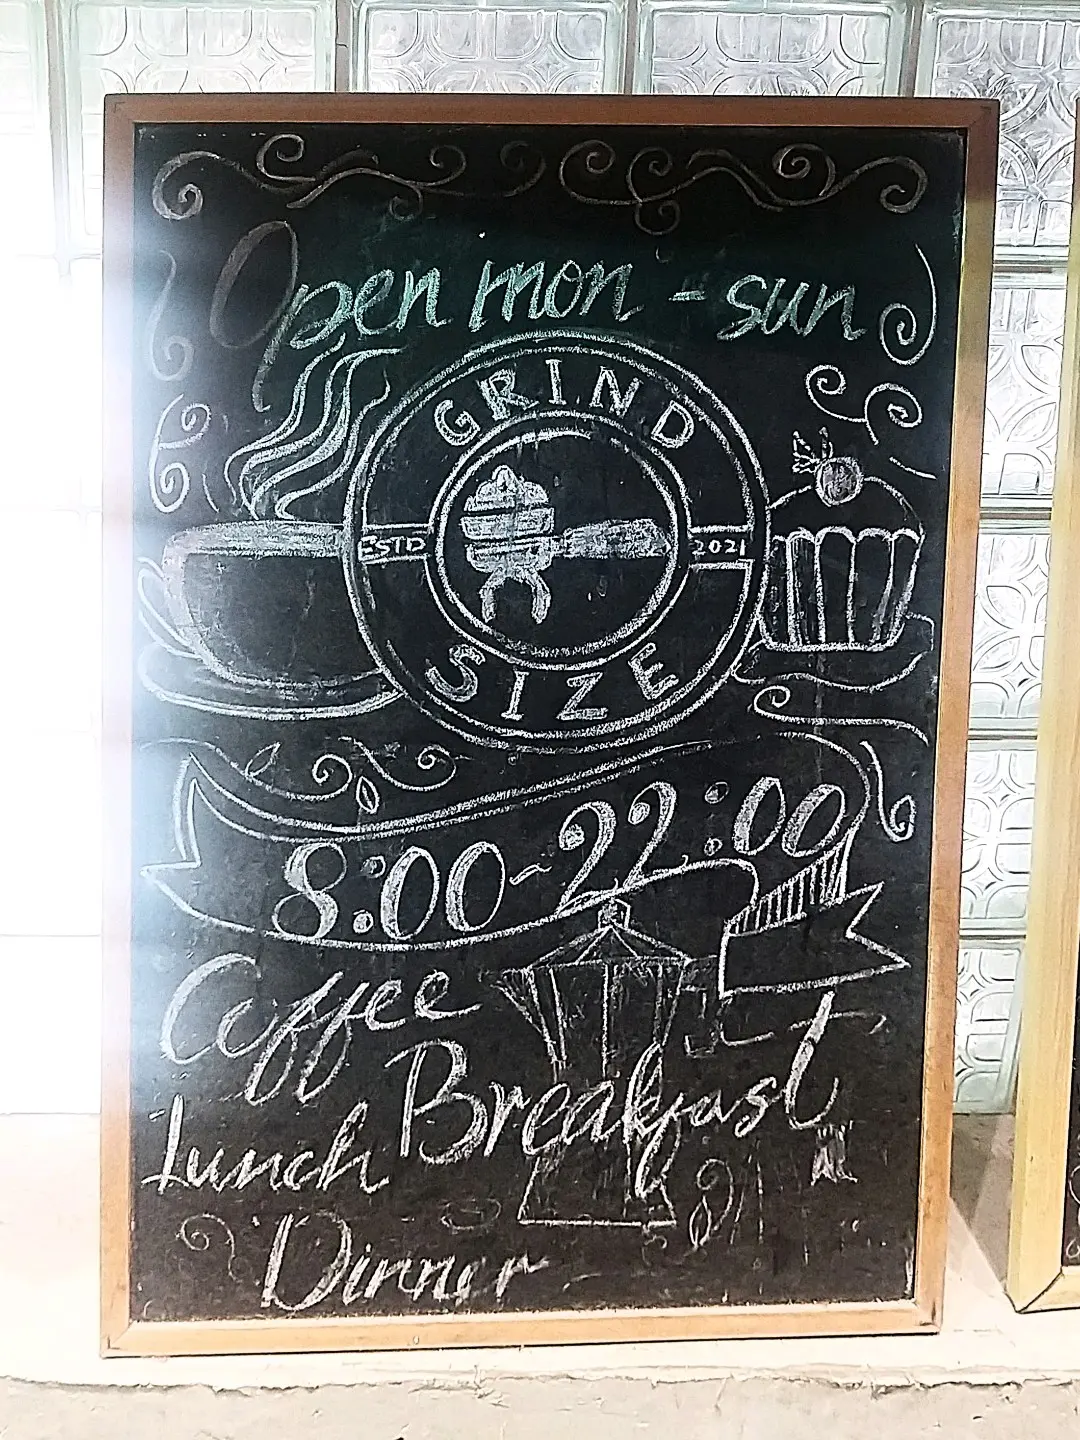 Open mon - sun
GRIND
ESTD 2021
SIZE
8:00~22:00
Coffee
Breakfast
Lunch
Dinner